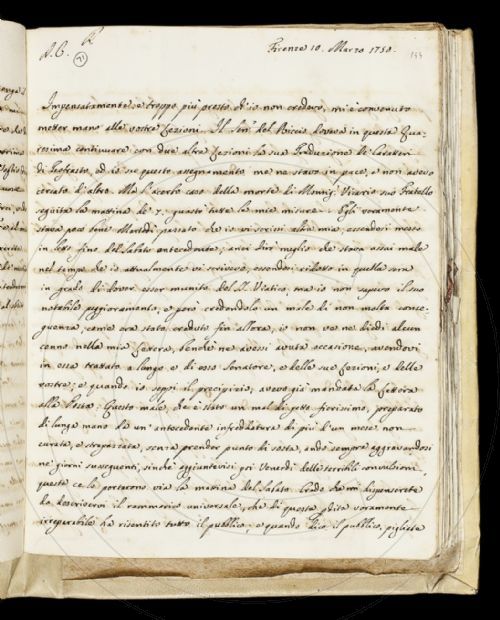 A. C. R.
71
Firenze 10. Marzo 1750.
144
Impensatamente, e troppo più presto ch'io non credevo, mi è convenuto
metter mano alle vostre Lezioni. Il Sen.r del Riccio doveva in questa Qua-
resima continuare con due altre Lezioni la sua Traduzione de' Caratteri
di Teofrasto, ed io su questo assegnamento me ne stavo in pace, e non avevo
cercato d'altro. Ma l'acerbo caso della morte di Monsig. Vicario suo Fratello
seguita la mattina de' 7. guastò tutte le mie misure. Egli veramente
stava poco bene Martedì passato che io vi scrissi altra mia, essendosi messo
in letto fino del Sabato antecedente; anzi dirò meglio che stava assai male
nel tempo che io attualmente vi scrivevo, essendosi ridotto in quella sera
in grado di dover esser munito del SS. Viatico, ma io non sapevo il suo
notabile peggioramento, e però credendolo un male di non molta conse-
guenza, come era stato creduto fin allora, io non ve ne diedi alcun
cenno nella mia Lettera, benchè ne avessi avuta occasione, avendovi
in essa trattato a lungo e di esso Senatore, e delle sue Lezioni, e delle
vostre; e quando io seppi il precipizio, avevo già mandata la Lettera
alla Posta. Questo male, che è stato un mal di petto fierissimo, preparato
di lunga mano da un' antecedente infreddatura di più d'un mese non
curata, e strapazzata, senza prender punto di sosta, andò sempre aggravandosi
ne' giorni susseguenti, sinchè aggiuntevisi poi Venerdì delle terribili convulsioni,
queste ce lo portarono via la mattina del Sabato. Credo che mi dispenserete
da descrivervi il rammarico universale, che di questa p̃dita veramente
irreparabile ha risentito tutto il pubblico; e quando dico il pubblico, pigliate